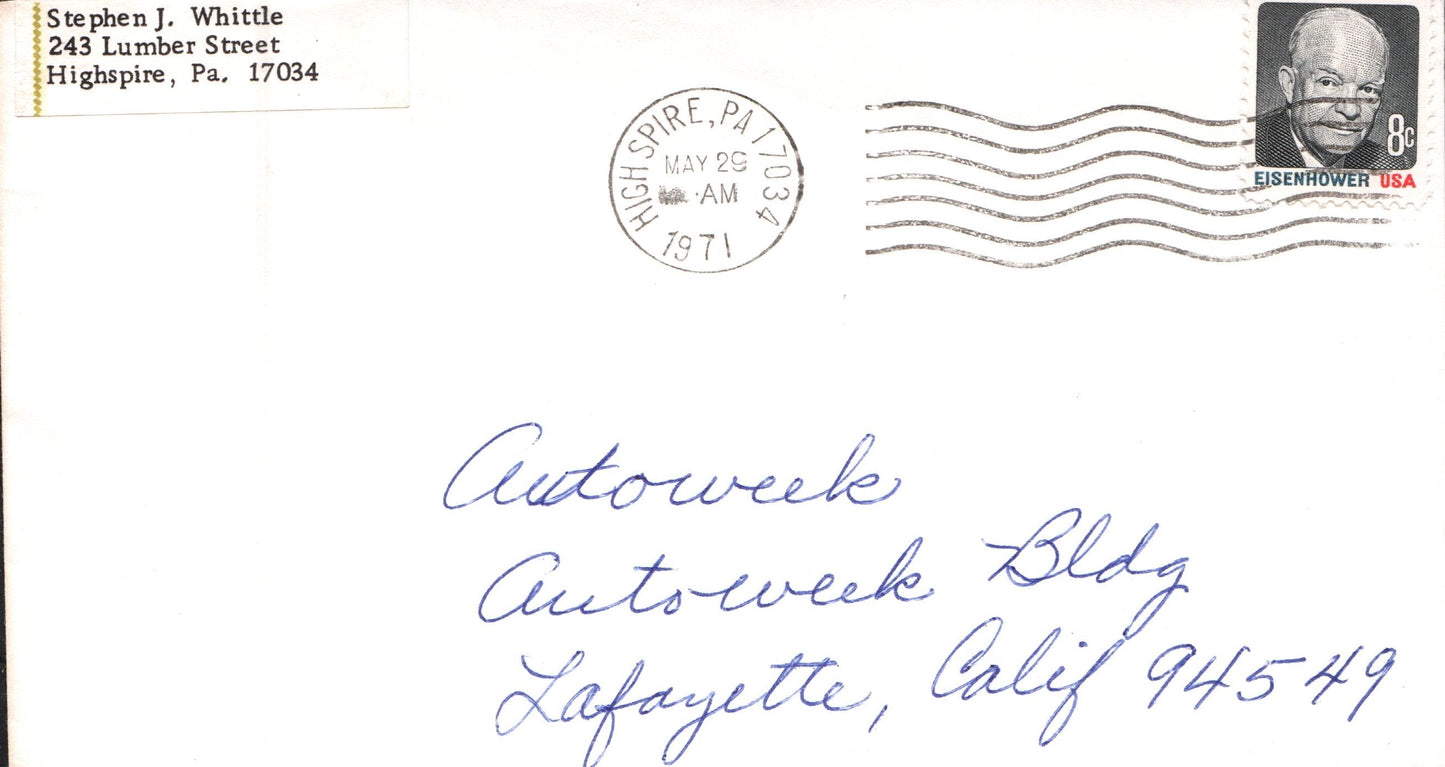 Stephen J. Whittle
243 Lumber Street
Highspire, Pa. 17034
HIGHSPIRE, PA 17034
MAY 29
AM
1971
8c
EISENHOWER USA
Autoweek
Autoweek Bldg
Lafayette, Calif 94549